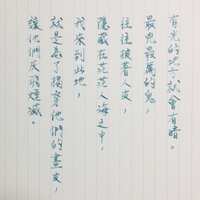 有光的地方就會有暗。
最兇最厲的鬼，
往往披著人皮，
隱藏在茫茫人海之中。
我來到此地，
就是為了揭穿他們的畫皮，
讓他們灰飛煙滅。